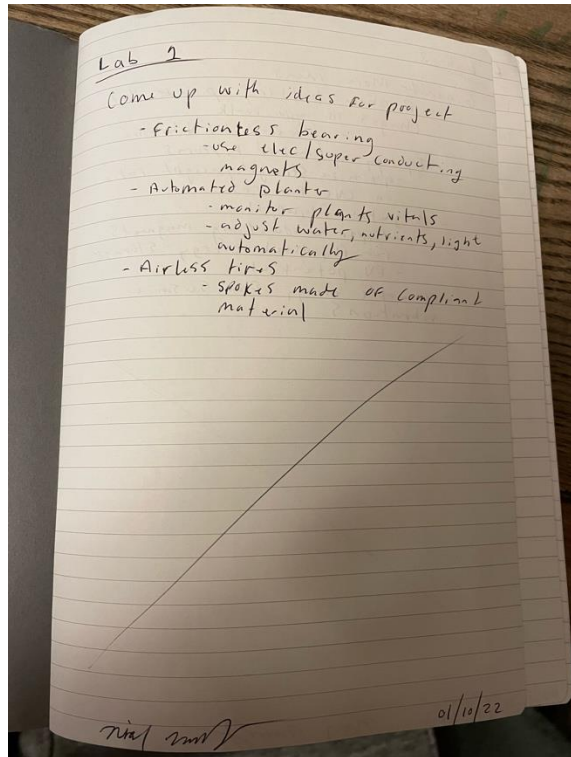 Lab 1
Come up with ideas for project
- Frictionless bearing
- use elec/super conducting
magnets
- Automated planter
- monitor plants vitals
- adjust water, nutrients, light
automatically
- Airless tires
- spokes made of compliant
material
01/10/22